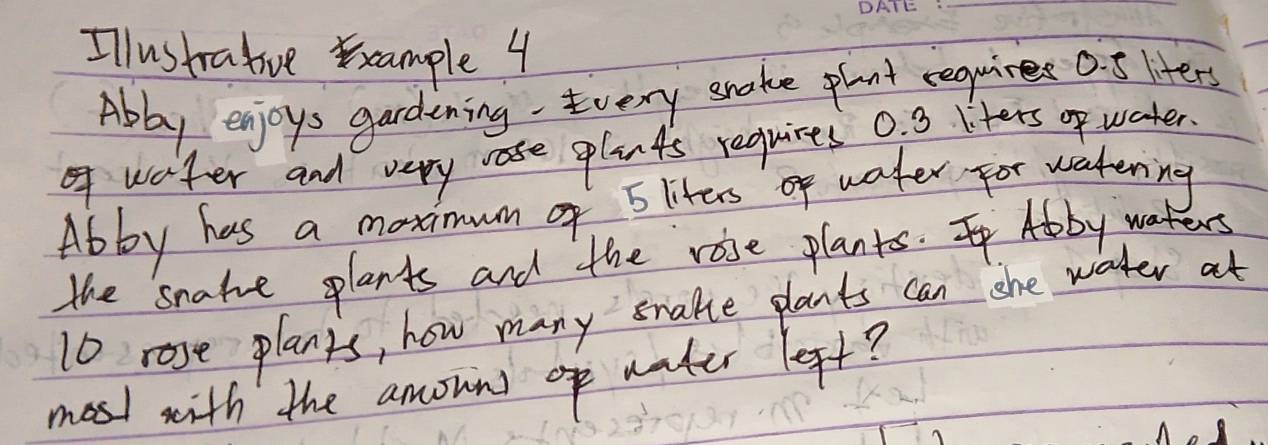 DATE :
Illustrative Example 4
Abby enjoys gardening. Every snake plant requires 0.5 liters
of water and very rose plants requires 0.3 liters of water.
Abby has a maximum of 5 liters of water for watering
the snake plants and the rose plants. If Abby waters
10 rose plants, how many snake plants can she water at
most with the amount of water left?